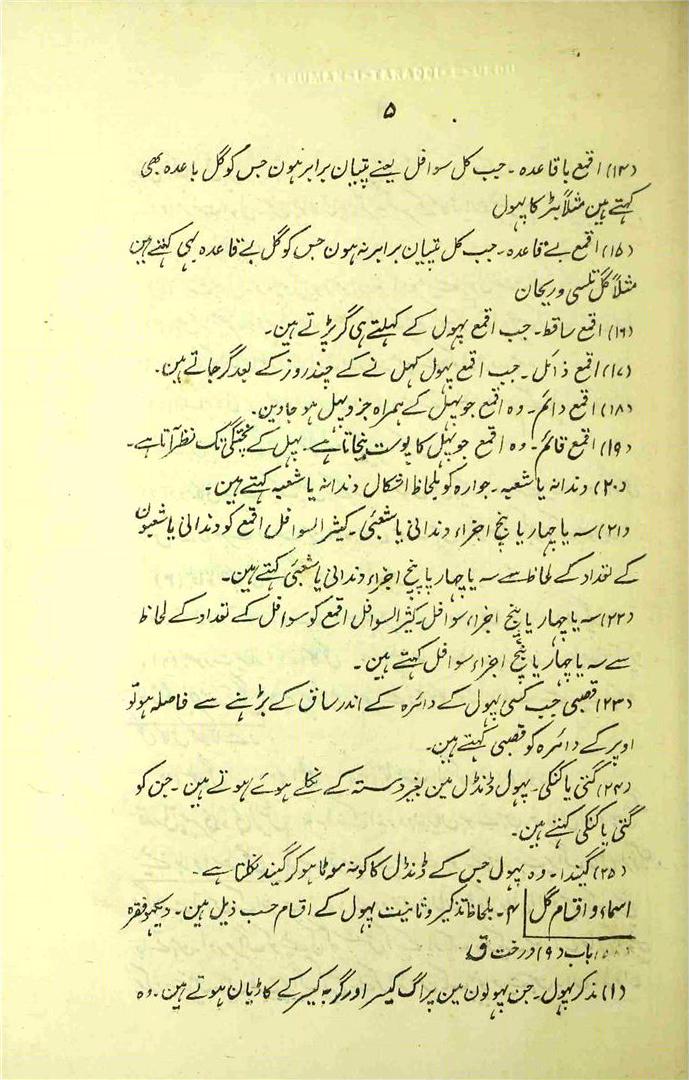 ۵
(۱۴) اقمع باقاعدہ۔ جب کل سوافل یعنے پتیان برابر ہون جس کو گل باعدہ بھی
کہتے ہین مثلاً بڑ کا پہول
(۱۵) اقمع بے قاعدہ۔ جب کل پتیان برابر نہ ہون جس کو گل بے قاعدہ بھی کہتے ہین
مثلاً گل تلسی و ریحان
(۱۶) اقمع ساقط۔ جب اقمع پہول کے کہلتے ہی گر پڑتے ہین۔
(۱۷) اقمع زائل۔ جب اقمع پہول کہل نے کے چند روز کے بعد گر جاتے ہین۔
(۱۸) اقمع دائم۔ وہ اقمع جو پہل کے ہمراہ جزو پہل ہو جاوین۔
(۱۹) اقمع قائم۔ وہ اقمع جو پہل کا پوست بنجاتا ہے۔ پہل کے پختگی تک نظر آتا ہے۔
(۲۰) دندانہ یا شعبہ۔ جوارہ کو بلحاظ اشکال دندانہ یا شعبہ کہتے ہین۔
(۲۱) سہ یا چہار یا پنج اجزاء دندانی یا شعبئی۔ کیثر السوافل اقمع کو دندانی یا شعبون
کے تعداد کے لحاظ سے سہ یا چہار یا پنج اجزاء دندانی یا شعبئی کہتے ہین۔
(۲۲) سہ یا چہار یا پنج اجزاء سوافل۔ کیثر السوافل اقمع کو سوافل کے تعداد کے لحاظ
سے سہ یا چہار یا پنج اجزاء سوافل کہتے ہین۔
(۲۳) قصبی جب کسی پہول کے دائرہ کے اندر ساق کے بڑہنے سے فاصلہ ہو تو
اوپر کے دائرہ کو قصبی کہتے ہین۔
(۲۴) گتی یا کنکی۔ پہول ڈنڈل مین بغیر دستہ کے نکلے ہوئے ہوتے ہین۔ جن کو
گتی یا کنکی کہتے ہین۔
(۲۵) گیندا۔ وہ پہول جس کے ڈنڈل کا کونہ موٹا ہو کر گیند نکلتا ہے۔
اسماء و اقسام گل ۴۔ بلحاظ تذکیر و ثانیت پہول کے اقسام حسب ذیل ہین۔ دیکہو فقرہ
باب (۹) درخت ق
(۱) مذکر پہول۔ جن پہولون مین پراگ کیسر اور گربہ کیسر کے کاڑیان ہوتے ہین۔ وہ